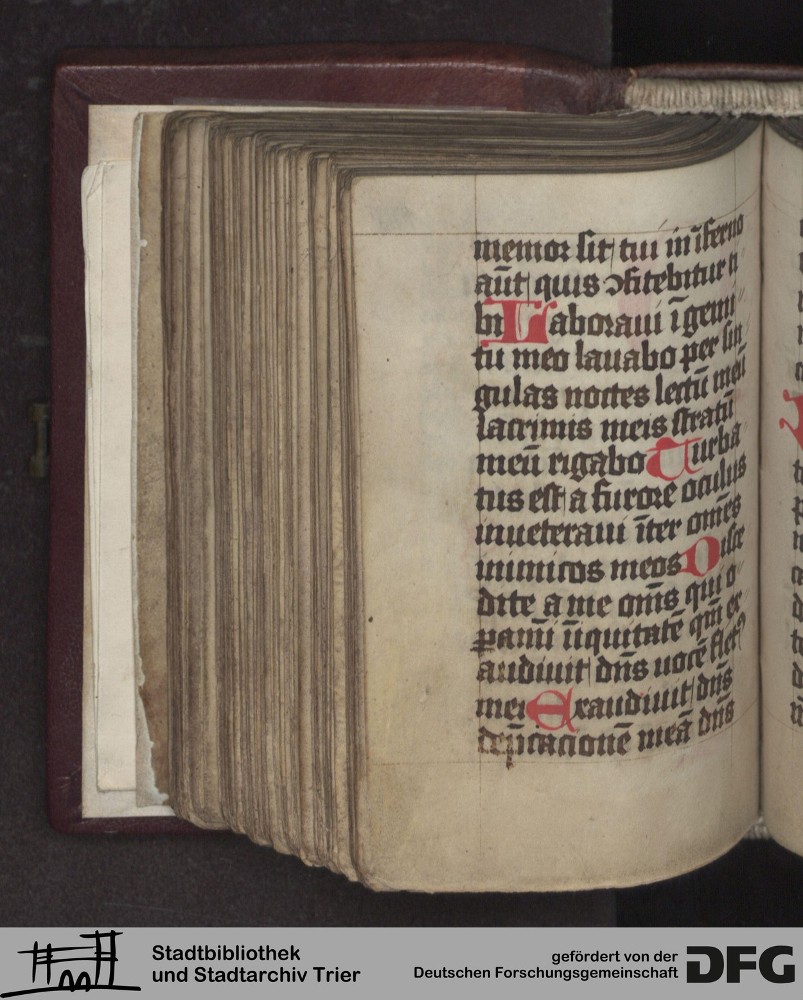 memor sit tui in īferno
aūt quis ꝯfitebitur ti
bi Laboraui ī gemi
tu meo lauabo per sin
gulas noctes lectū meū
lacrimis meis stratū
meū rigabo Turba
tus est a furore oculus
inueteraui īter om̄es
inimicos meos Disce
dite a me om̄s qui o
ꝑami īiquitatē qm̄ ex
audiuit dn̄s uocē fletꝰ
mei Exaudiuit dn̄s
dep̄cacionē meā dn̄s
Stadtbibliothek
und Stadtarchiv Trier
gefördert von der
Deutschen Forschungsgemeinschaft
DFG